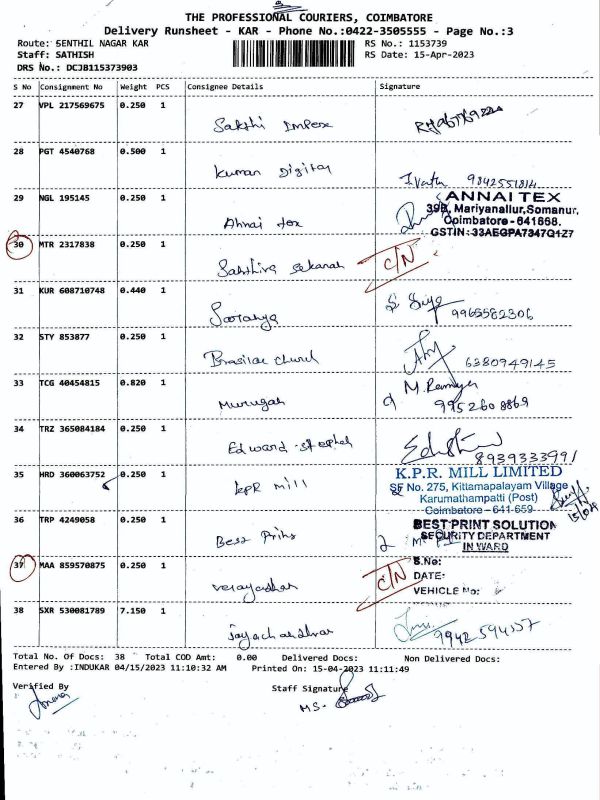 THE PROFESSIONAL COURIERS, COIMBATORE
Delivery Runsheet - KAR - Phone No.:0422-3505555 - Page No.:3
Route: SENTHIL NAGAR KAR RS No.: 1153739
Staff: SATHISH RS Date: 15-Apr-2023
DRS No.: DCJB115373903
S No Consignment No Weight PCS Consignee Details Signature
27 VPL 217569675 0.250 1
Sakthi Impex
28 PGT 4540768 0.500 1
Kumar Digital
9842551814
29 NGL 195145 0.250 1
ANNAI TEX
39B, Mariyanallur,Somanur,
Annai tex
Coimbatore - 641668.
GSTIN : 33AEGPA7347Q1Z7
30 MTR 2317838 0.250 1
C/N
31 KUR 608710748 0.440 1
9965582306
32 STY 853877 0.250 1
6380949145
33 TCG 40454815 0.820 1
Murugan
M. Ramya
995260 8869
34 TRZ 365084184 0.250 1
Edward
8939333991
35 HRD 360063752 0.250 1
K.P.R. MILL LIMITED
SF No. 275, Kittamapalayam Village
KPR Mill
Karumathampatti (Post)
Coimbatore - 641 659
36 TRP 4249058 0.250 1
BEST PRINT SOLUTION
SECURITY DEPARTMENT
Best Print
IN WARD
37 MAA 859570875 0.250 1
S.No:
C/N
DATE:
VEHICLE No:
38 SXR 530081789 7.150 1
9942594557
Total No. Of Docs: 38 Total COD Amt: 0.00 Delivered Docs: Non Delivered Docs:
Entered By :INDUKAR 04/15/2023 11:10:32 AM Printed On: 15-04-2023 11:11:49
Verified By Staff Signature